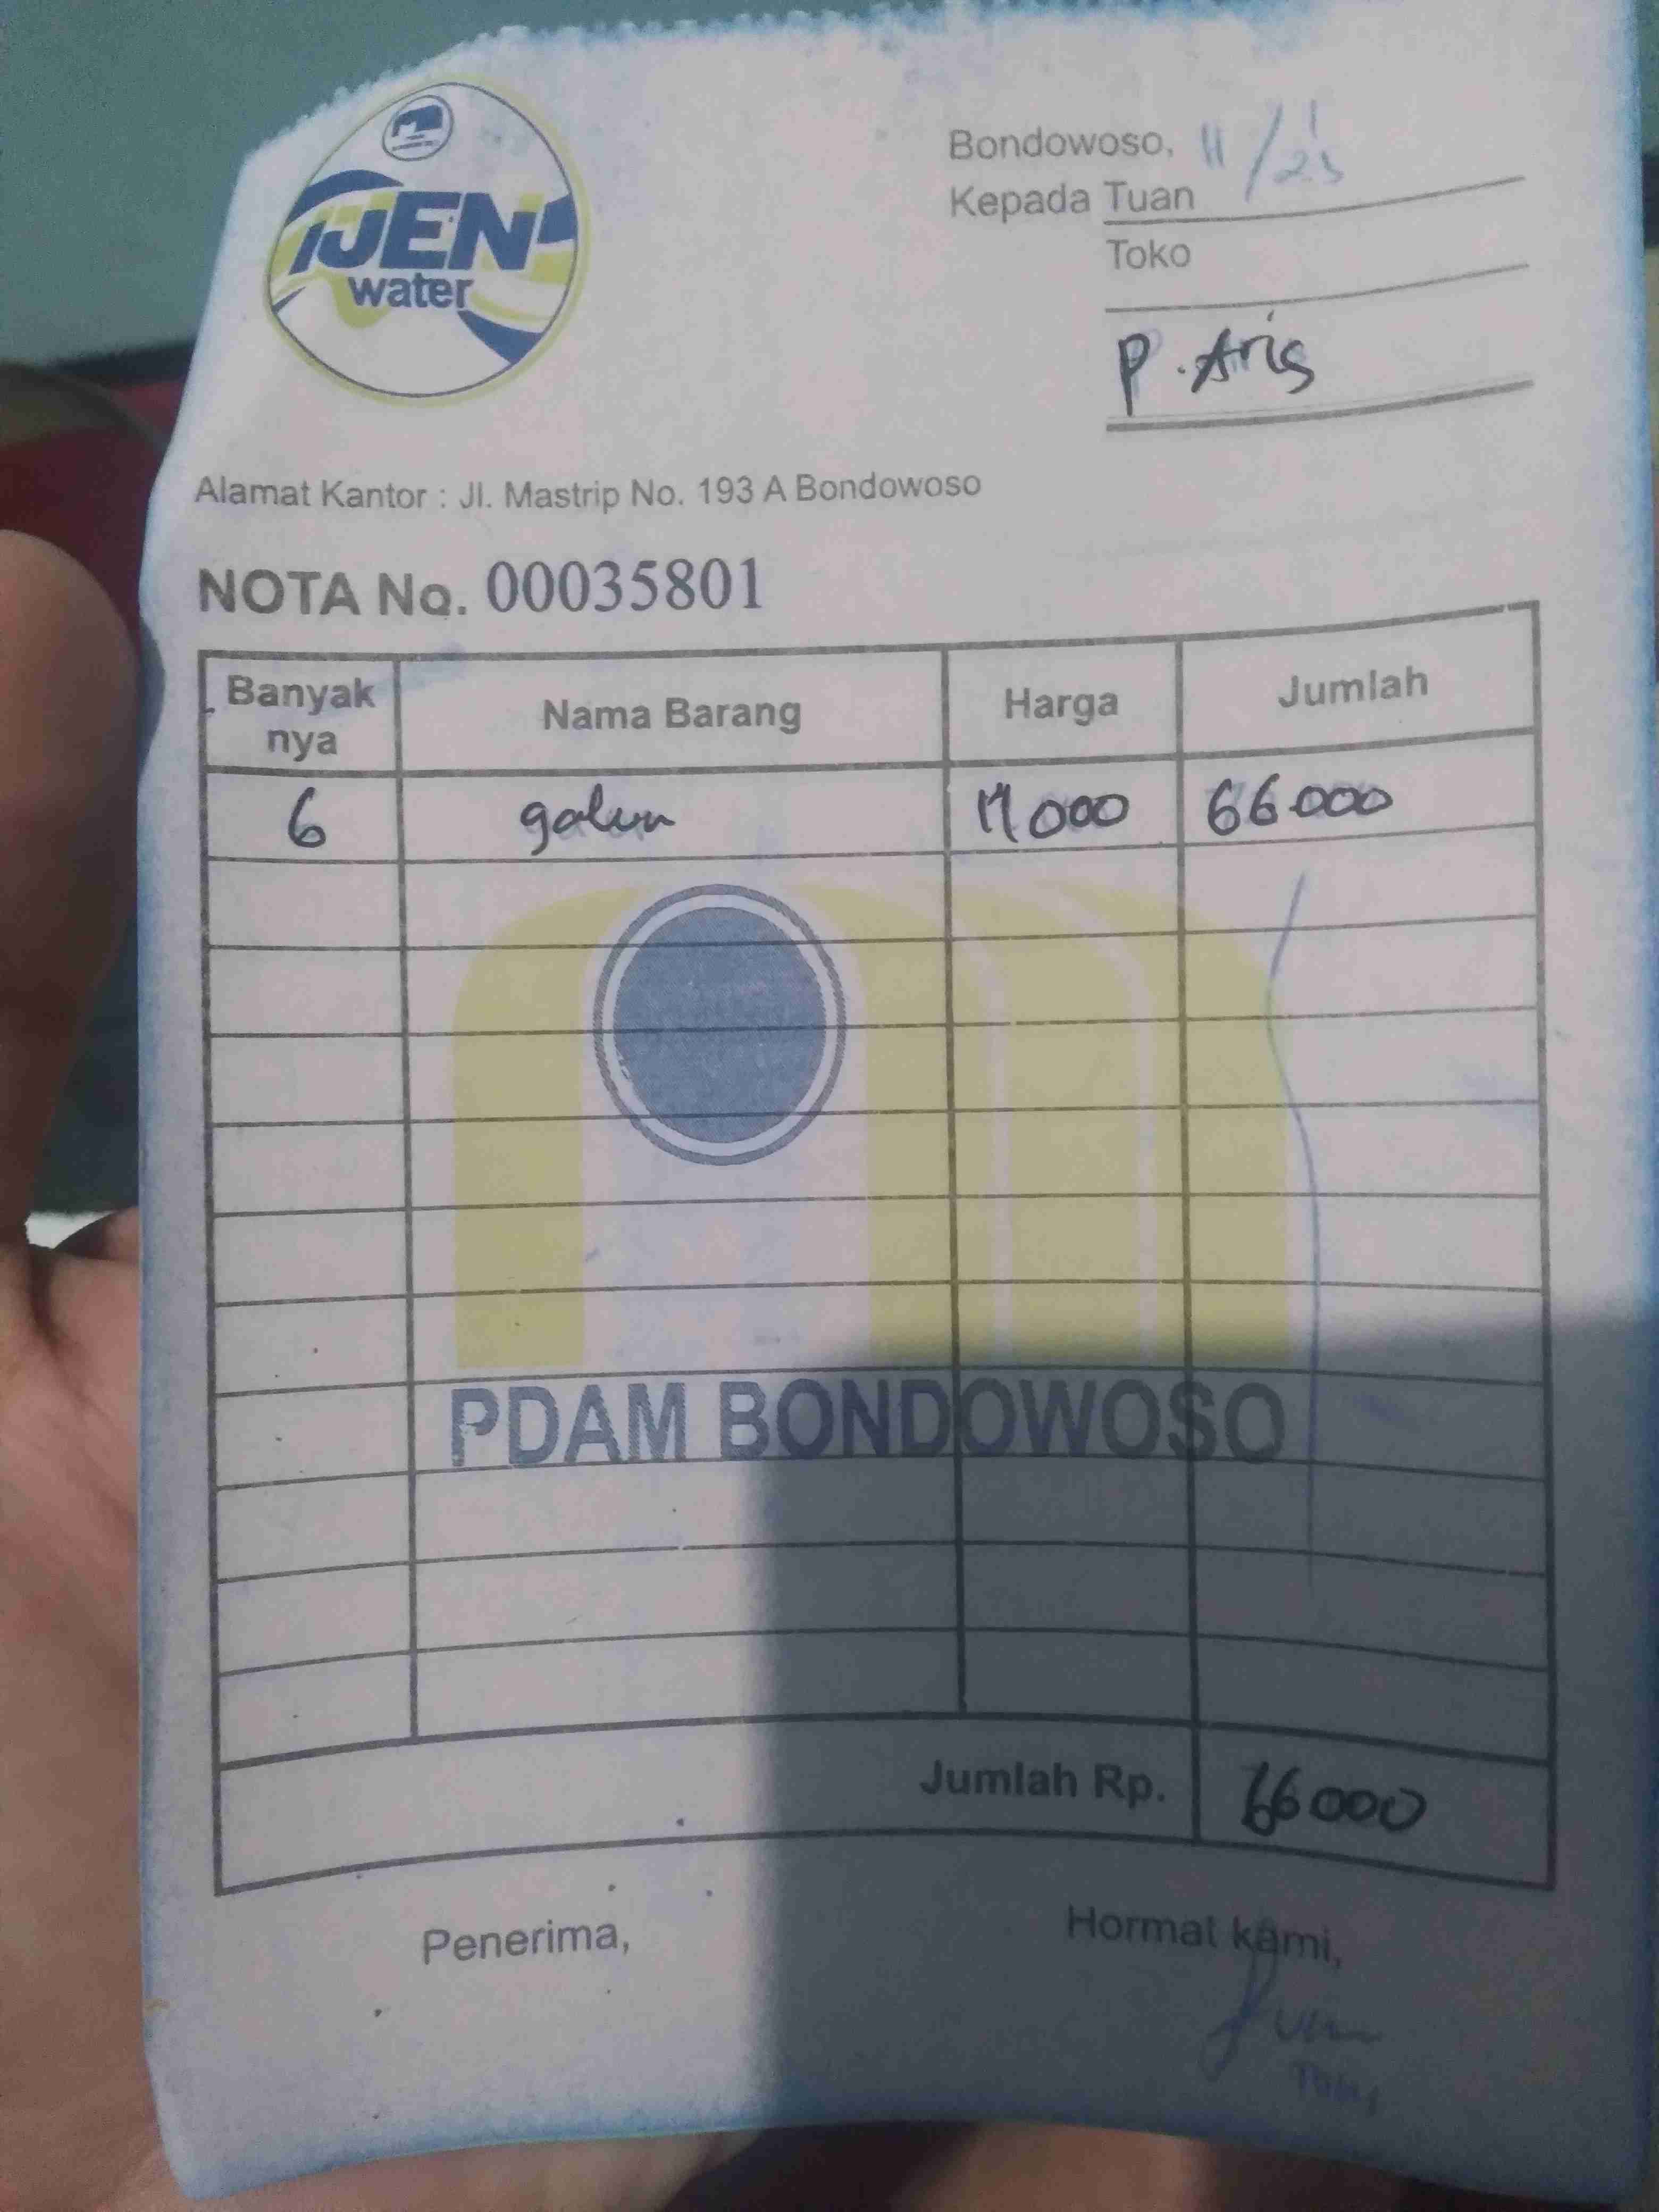 IJEN
water
Bondowoso, 11/1 23
Kepada Tuan
Toko
P. Aris
Alamat Kantor : Jl. Mastrip No. 193 A Bondowoso
NOTA No. 00035801
Banyak nya Nama Barang Harga Jumlah
6 galon 11000 66000
PDAM BONDOWOSO
Jumlah Rp. 66000
Penerima, Hormat kami,